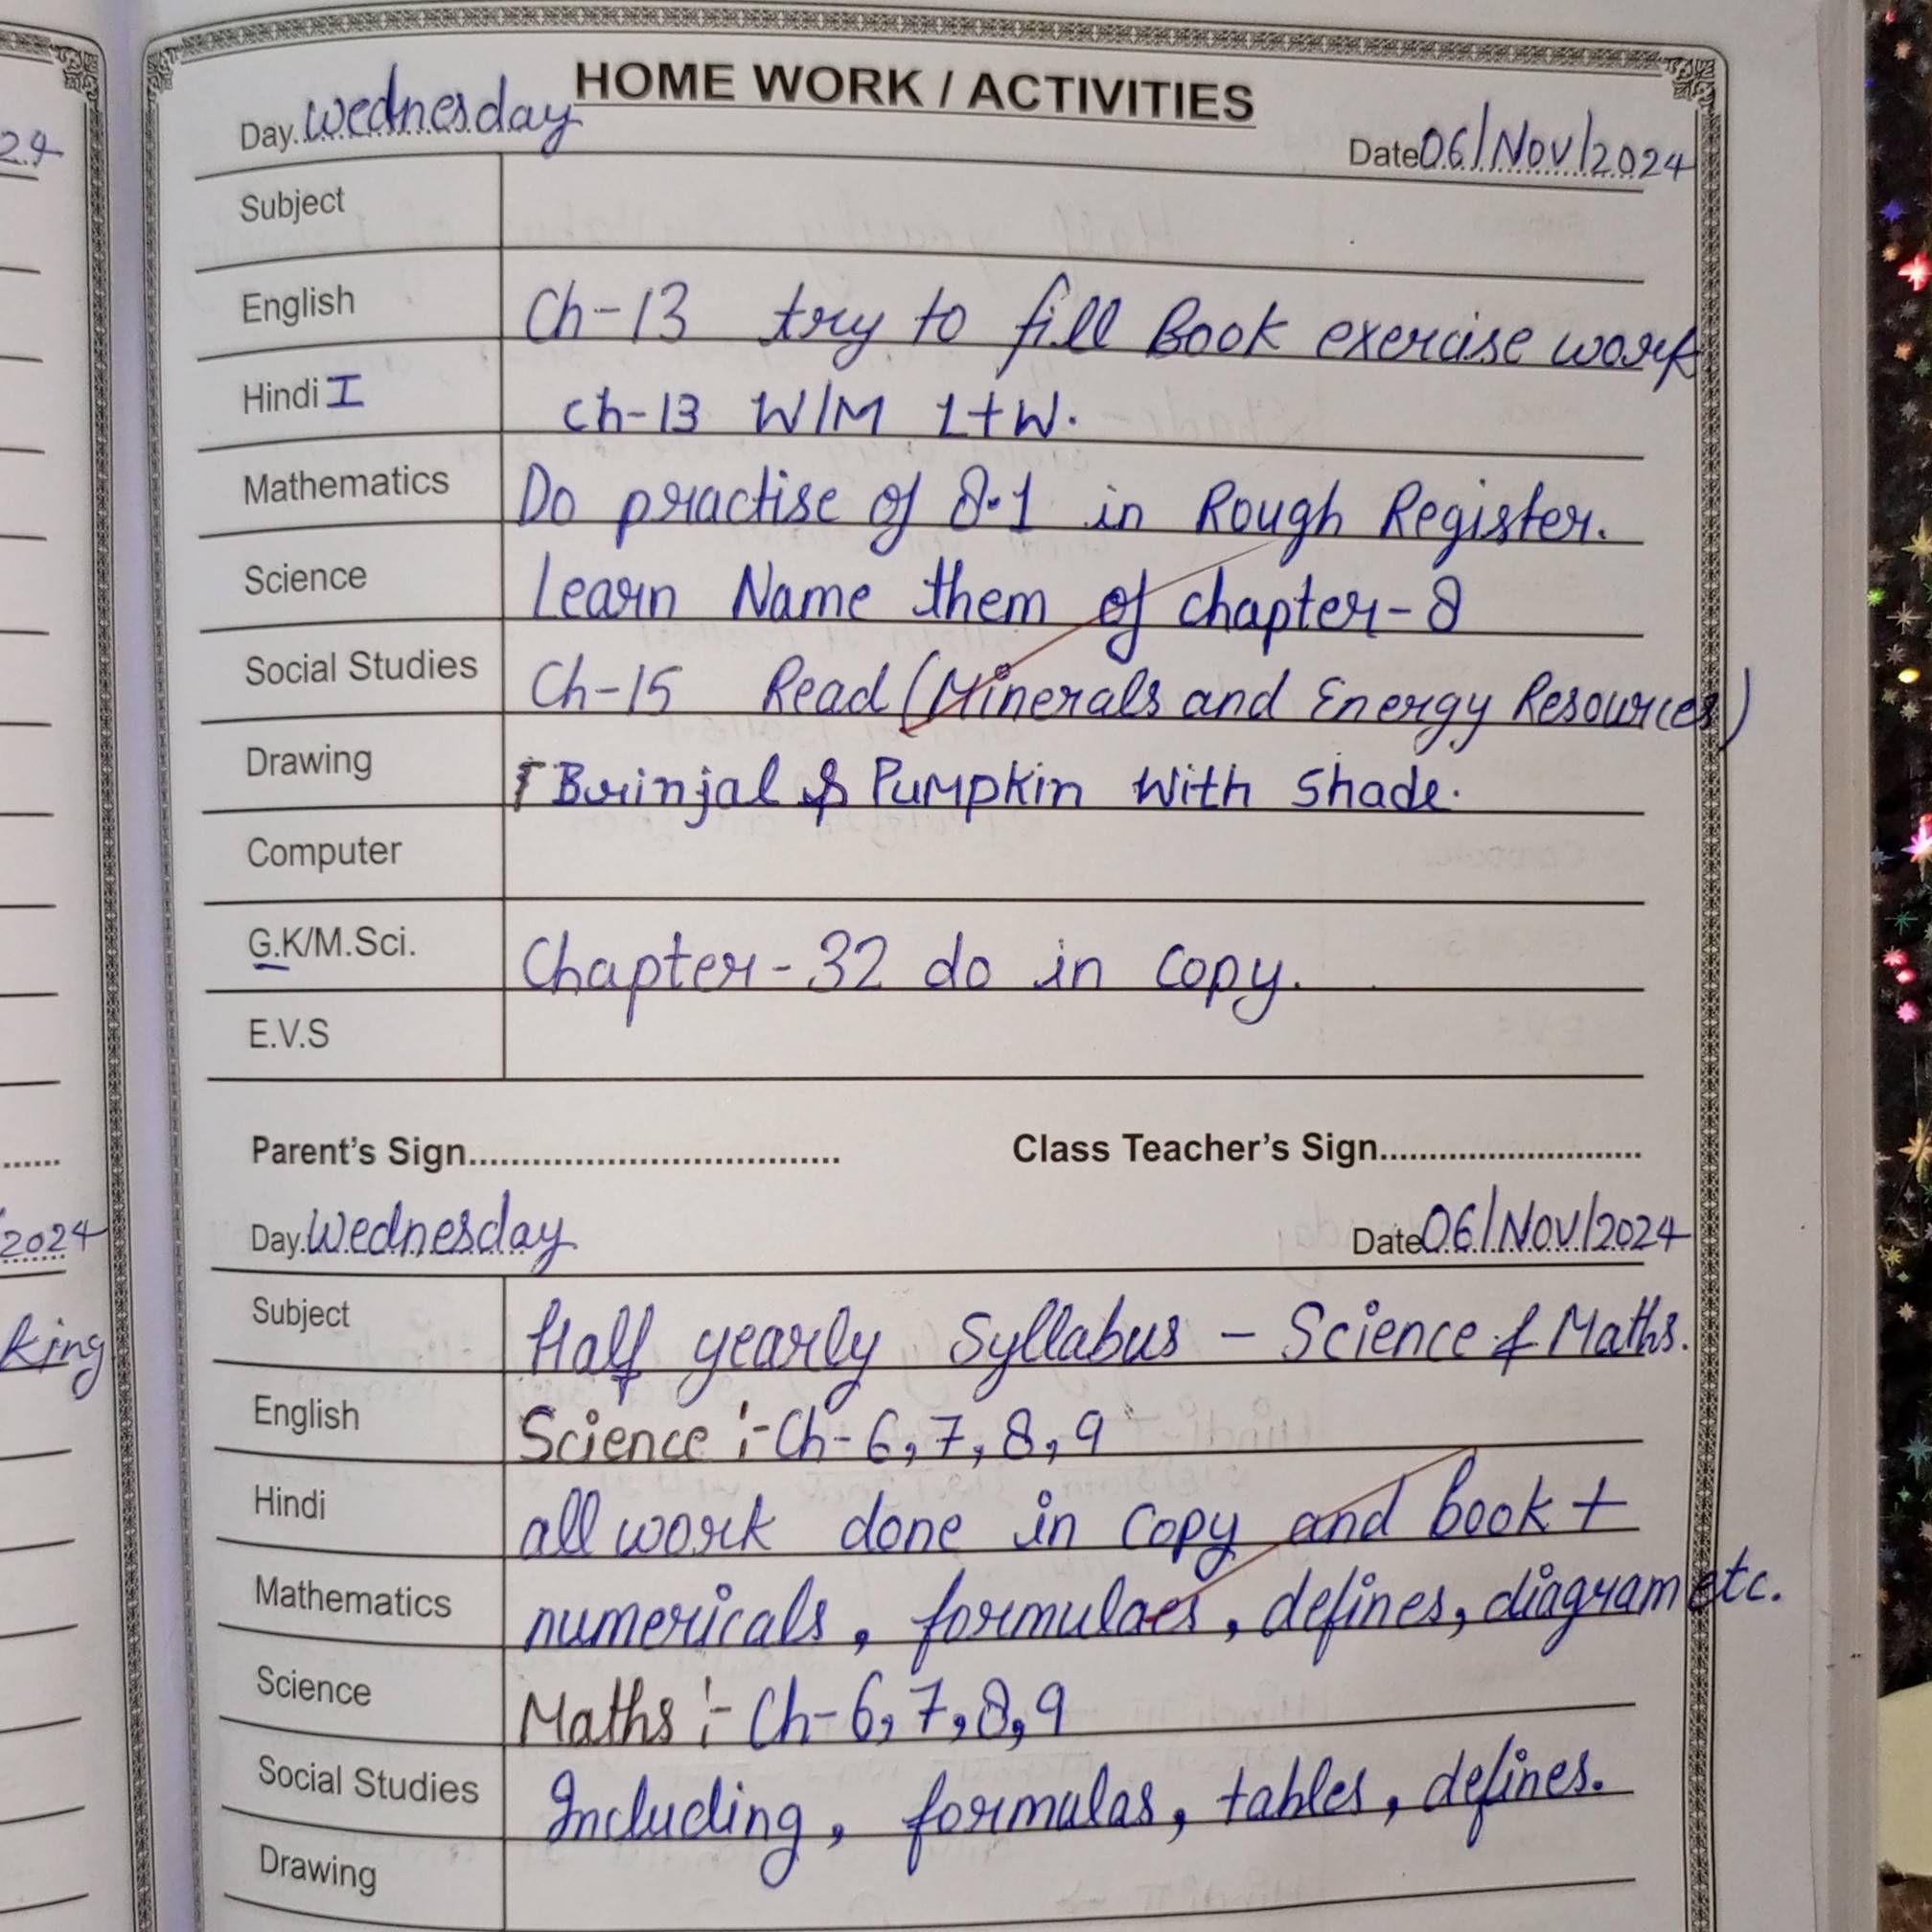 HOME WORK / ACTIVITIES
Day. Wednesday Date 06/Nov/2024
Subject
English Ch-13 try to fill Book exercise work
Hindi I Ch-13 W/M L+W.
Mathematics Do practise of 8.1 in Rough Register.
Science Learn Name them of chapter-8
Social Studies Ch-15 Read (Minerals and Energy Resources)
Drawing Brinjal & Pumpkin With Shade.
Computer
G.K/M.Sci. Chapter-32 do in copy.
E.V.S
Parent's Sign.................................... Class Teacher's Sign..........................
Day. Wednesday Date 06/Nov/2024
Subject Half yearly Syllabus - Science & Maths.
English Science :- Ch-6, 7, 8, 9
Hindi all work done in copy and book +
Mathematics numericals, formulaes, defines, diagram etc.
Science Maths :- Ch-6, 7, 8, 9
Social Studies Including, formulas, tables, defines.
Drawing
24
2024
king